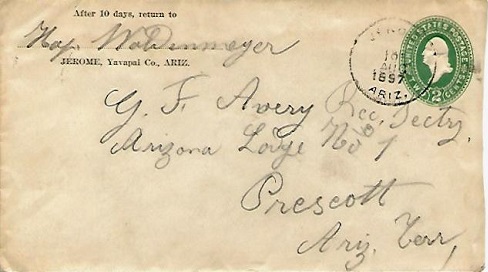 After 10 days, return to
JEROME, Yavapai Co., ARIZ.
JEROME
10
AUG
1897
ARIZ.
UNITED STATES POSTAGE
TWO 2 CENTS
G. F. Avery Rec, Sectry,
Arizona Lodge No 1
Prescott
Ariz. Terr,